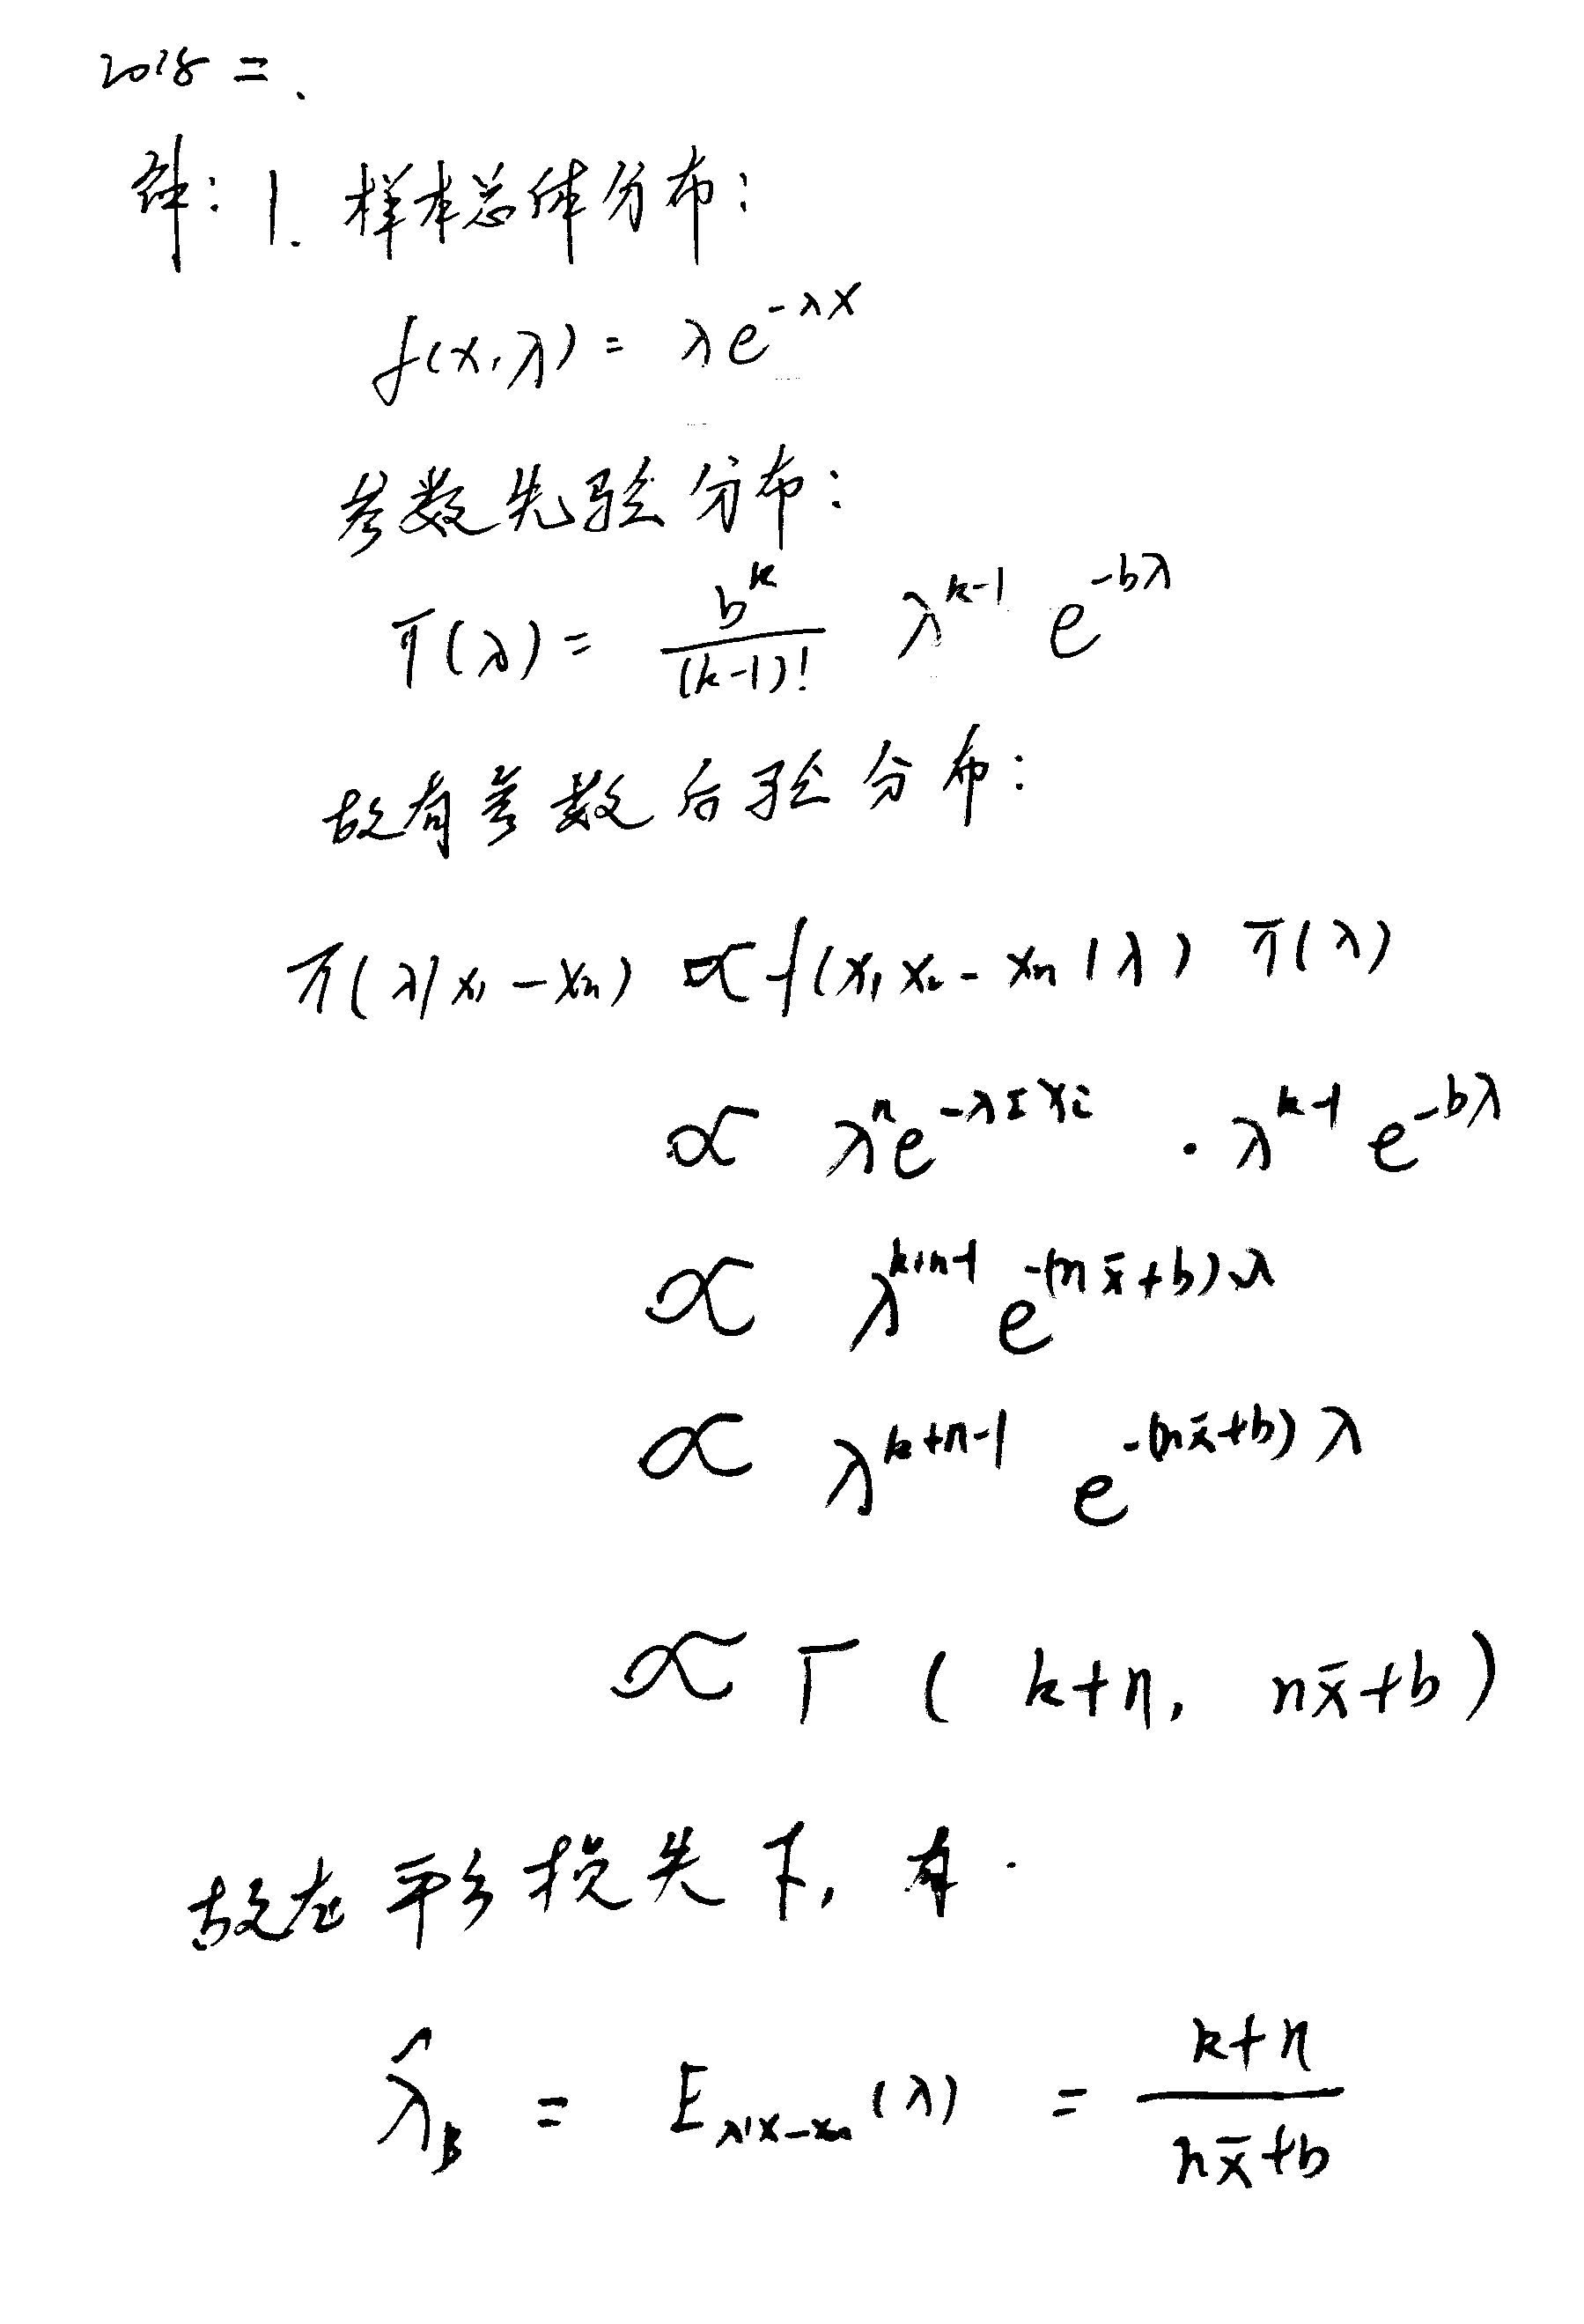 2018 二、
解：1. 样本总体分布：
f(x,λ) = λe^{-λx}
参数先验分布：
π(λ) = \frac{b^k}{(k-1)!} λ^{k-1} e^{-bλ}
故有参数后验分布：
π(λ|x₁-xₙ) ∝ f(x₁x₂-xₙ|λ) π(λ)
∝ λⁿe^{-λΣxᵢ} · λ^{k-1} e^{-bλ}
∝ λ^{k+n-1} e^{-(nx̄+b)λ}
∝ λ^{k+n-1} e^{-(nx̄+b)λ}
∝ Γ ( k+n, nx̄+b )
故在平方损失下，有.
λ̂_B = E_{λ|x-xₙ}(λ) = \frac{k+n}{nx̄+b}